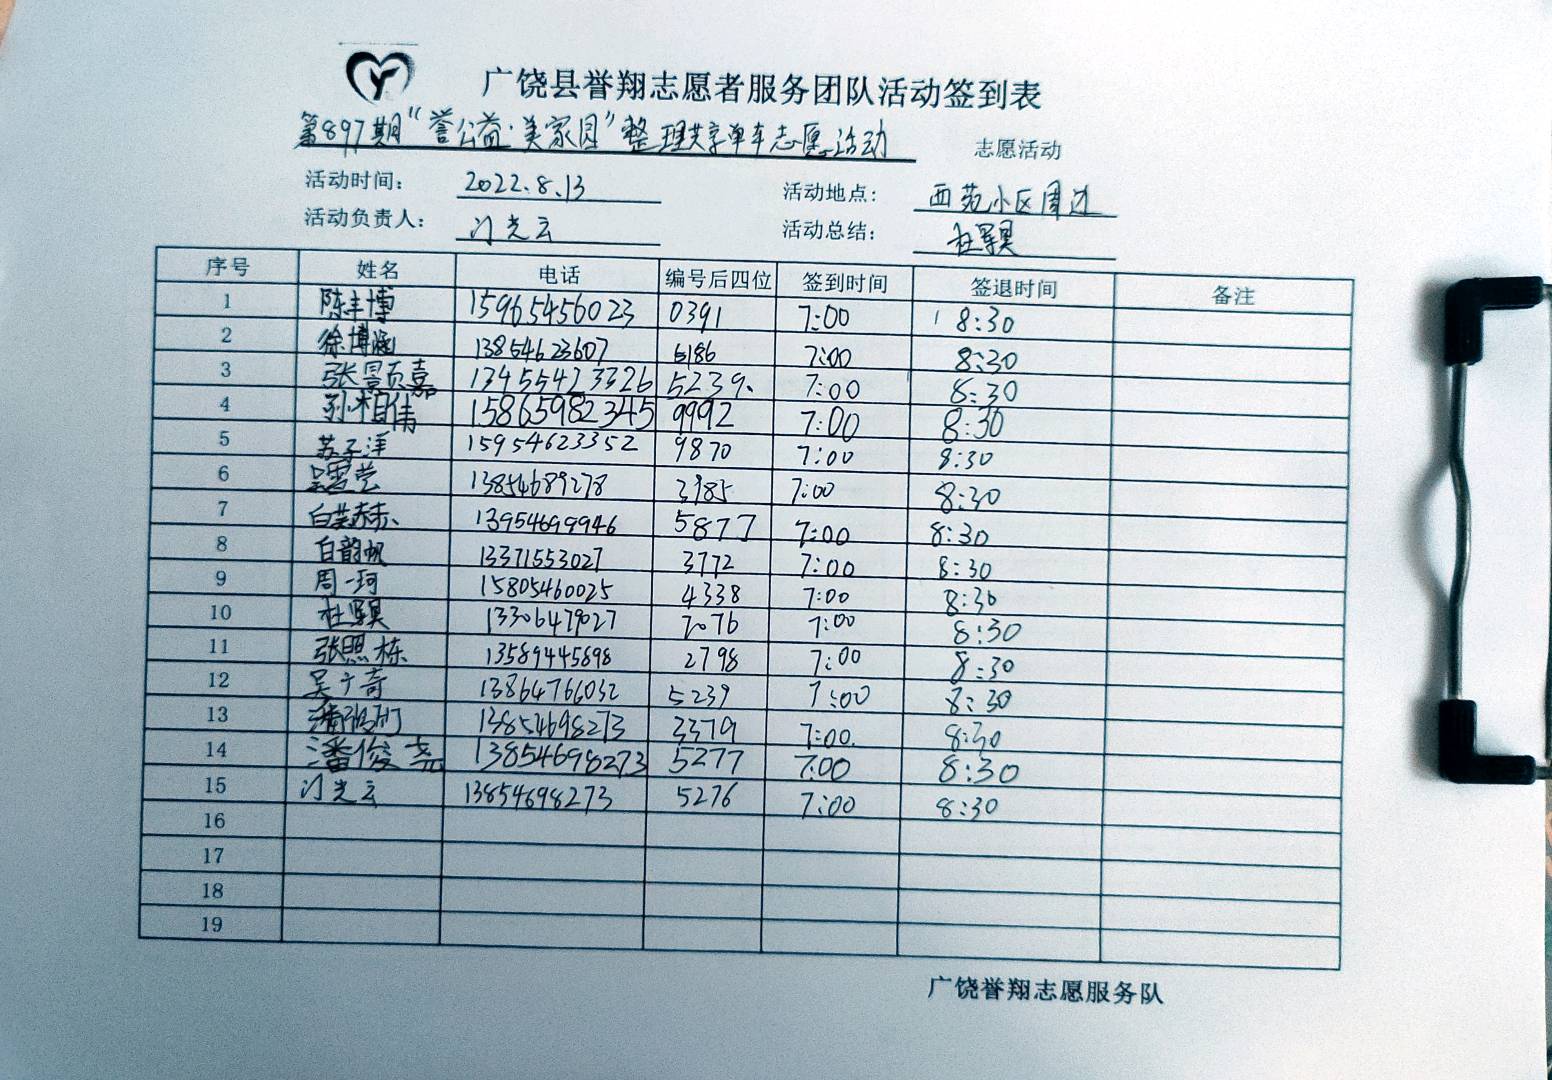 广饶县誉翔志愿者服务团队活动签到表
第897期“誉公益·美家园”整理共享单车志愿活动 志愿活动
活动时间： 2022.8.13 活动地点： 西苑小区周边
活动负责人： 门光云 活动总结： 杜昊
序号 姓名 电话 编号后四位 签到时间 签退时间 备注
1 陈丰博 15965456023 0391 7:00 8:30
2 徐博涵 13854623607 6186 7:00 8:30
3 张景嘉 13455423326 5239 7:00 8:30
4 孙相伟 15865982345 9992 7:00 8:30
5 苏子洋 15954623352 9870 7:00 8:30
6 吴雪莹 13854689278 3985 7:00 8:30
7 白芙赫 13954699946 5877 7:00 8:30
8 白韵帆 13371553027 3772 7:00 8:30
9 周一珂 15805460025 4338 7:00 8:30
10 杜昊 13306479027 7076 7:00 8:30
11 张照栋 13589445898 2798 7:00 8:30
12 吴于奇 13864766032 5239 7:00 8:30
13 13854698273 3379 7:00 8:30
14 潘俊尧 13854698273 5277 7:00 8:30
15 门光云 13854698273 5276 7:00 8:30
16
17
18
19
广饶誉翔志愿服务队